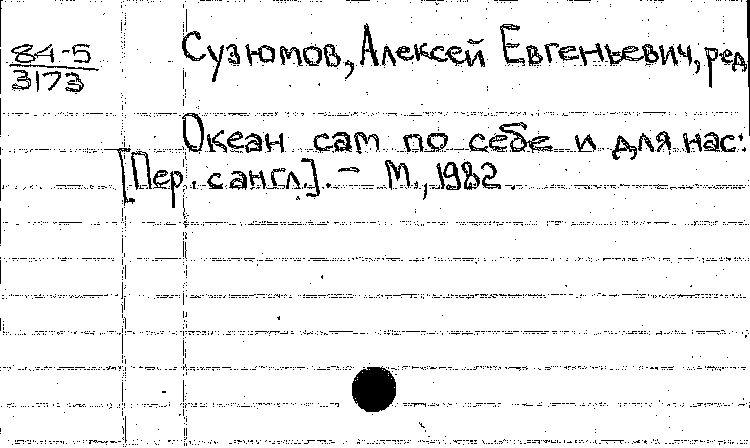 84-5
3173
Сузюмов, Алексей Евгеньевич, ред
Океан сам по себе и для нас:
[Пер. с англ.]. - М., 1982.